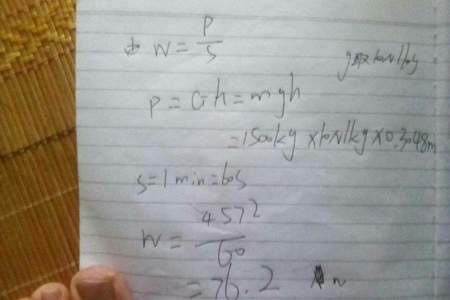 由 W = P/S
g取10N/kg
P = Gh = mgh
= 1500kg × 10N/kg × 0.3048m
S = 1 min = 60s
W = 4572/60
= 76.2